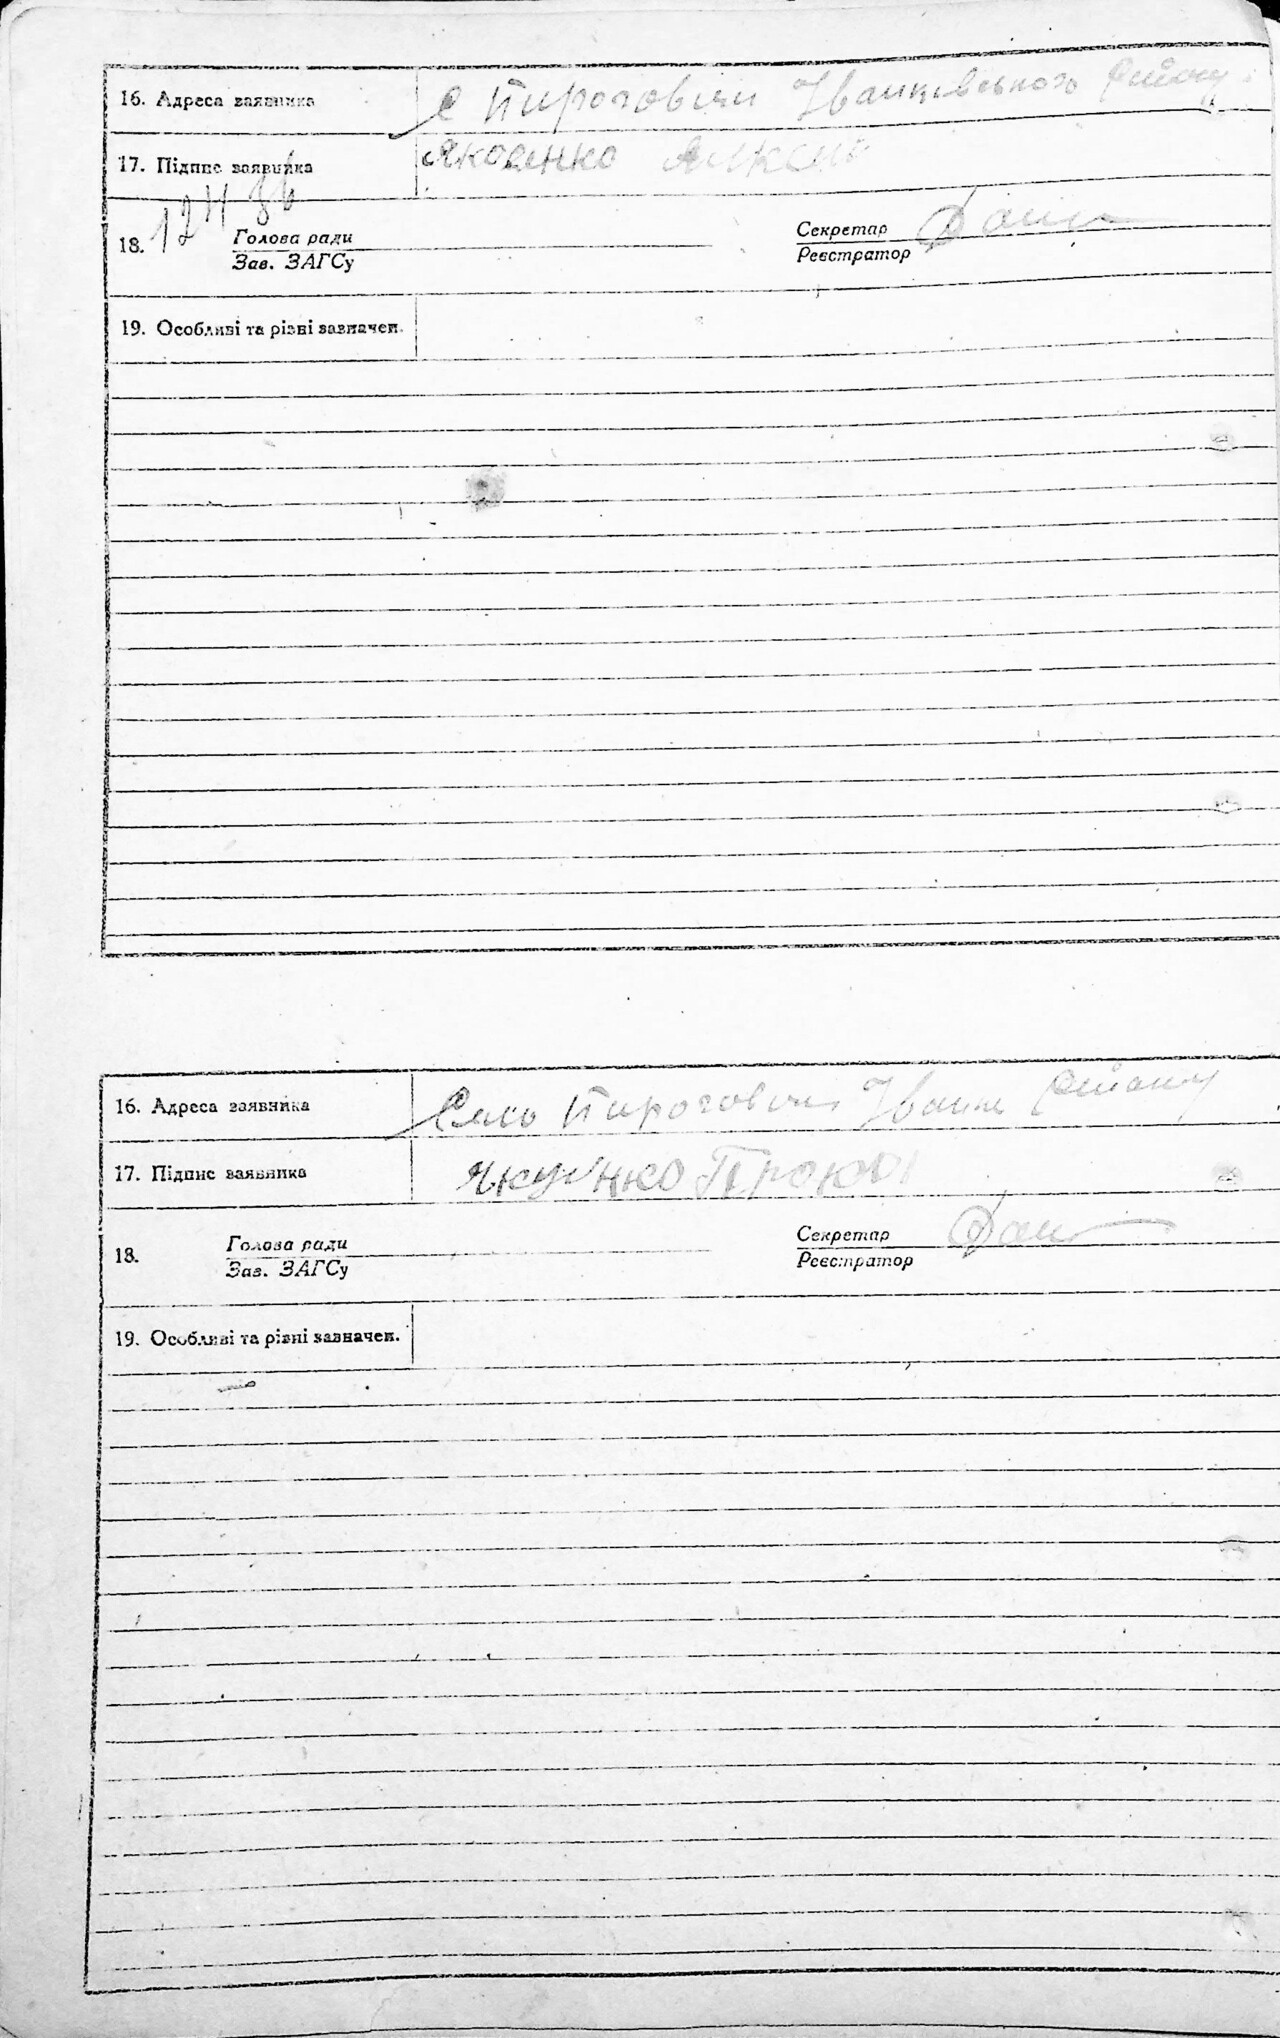 16. Адреса заявника с Пироговичи Іванківського району
17. Підпис заявника Яковенко Алксій
18. Голова ради Секретар
Зав. ЗАГСу Реєстратор
19. Особливі та різні зазначен.
16. Адреса заявника Село Пироговичі Іванк району
17. Підпис заявника
18. Голова ради Секретар
Зав. ЗАГСу Реєстратор
19. Особливі та різні зазначен.